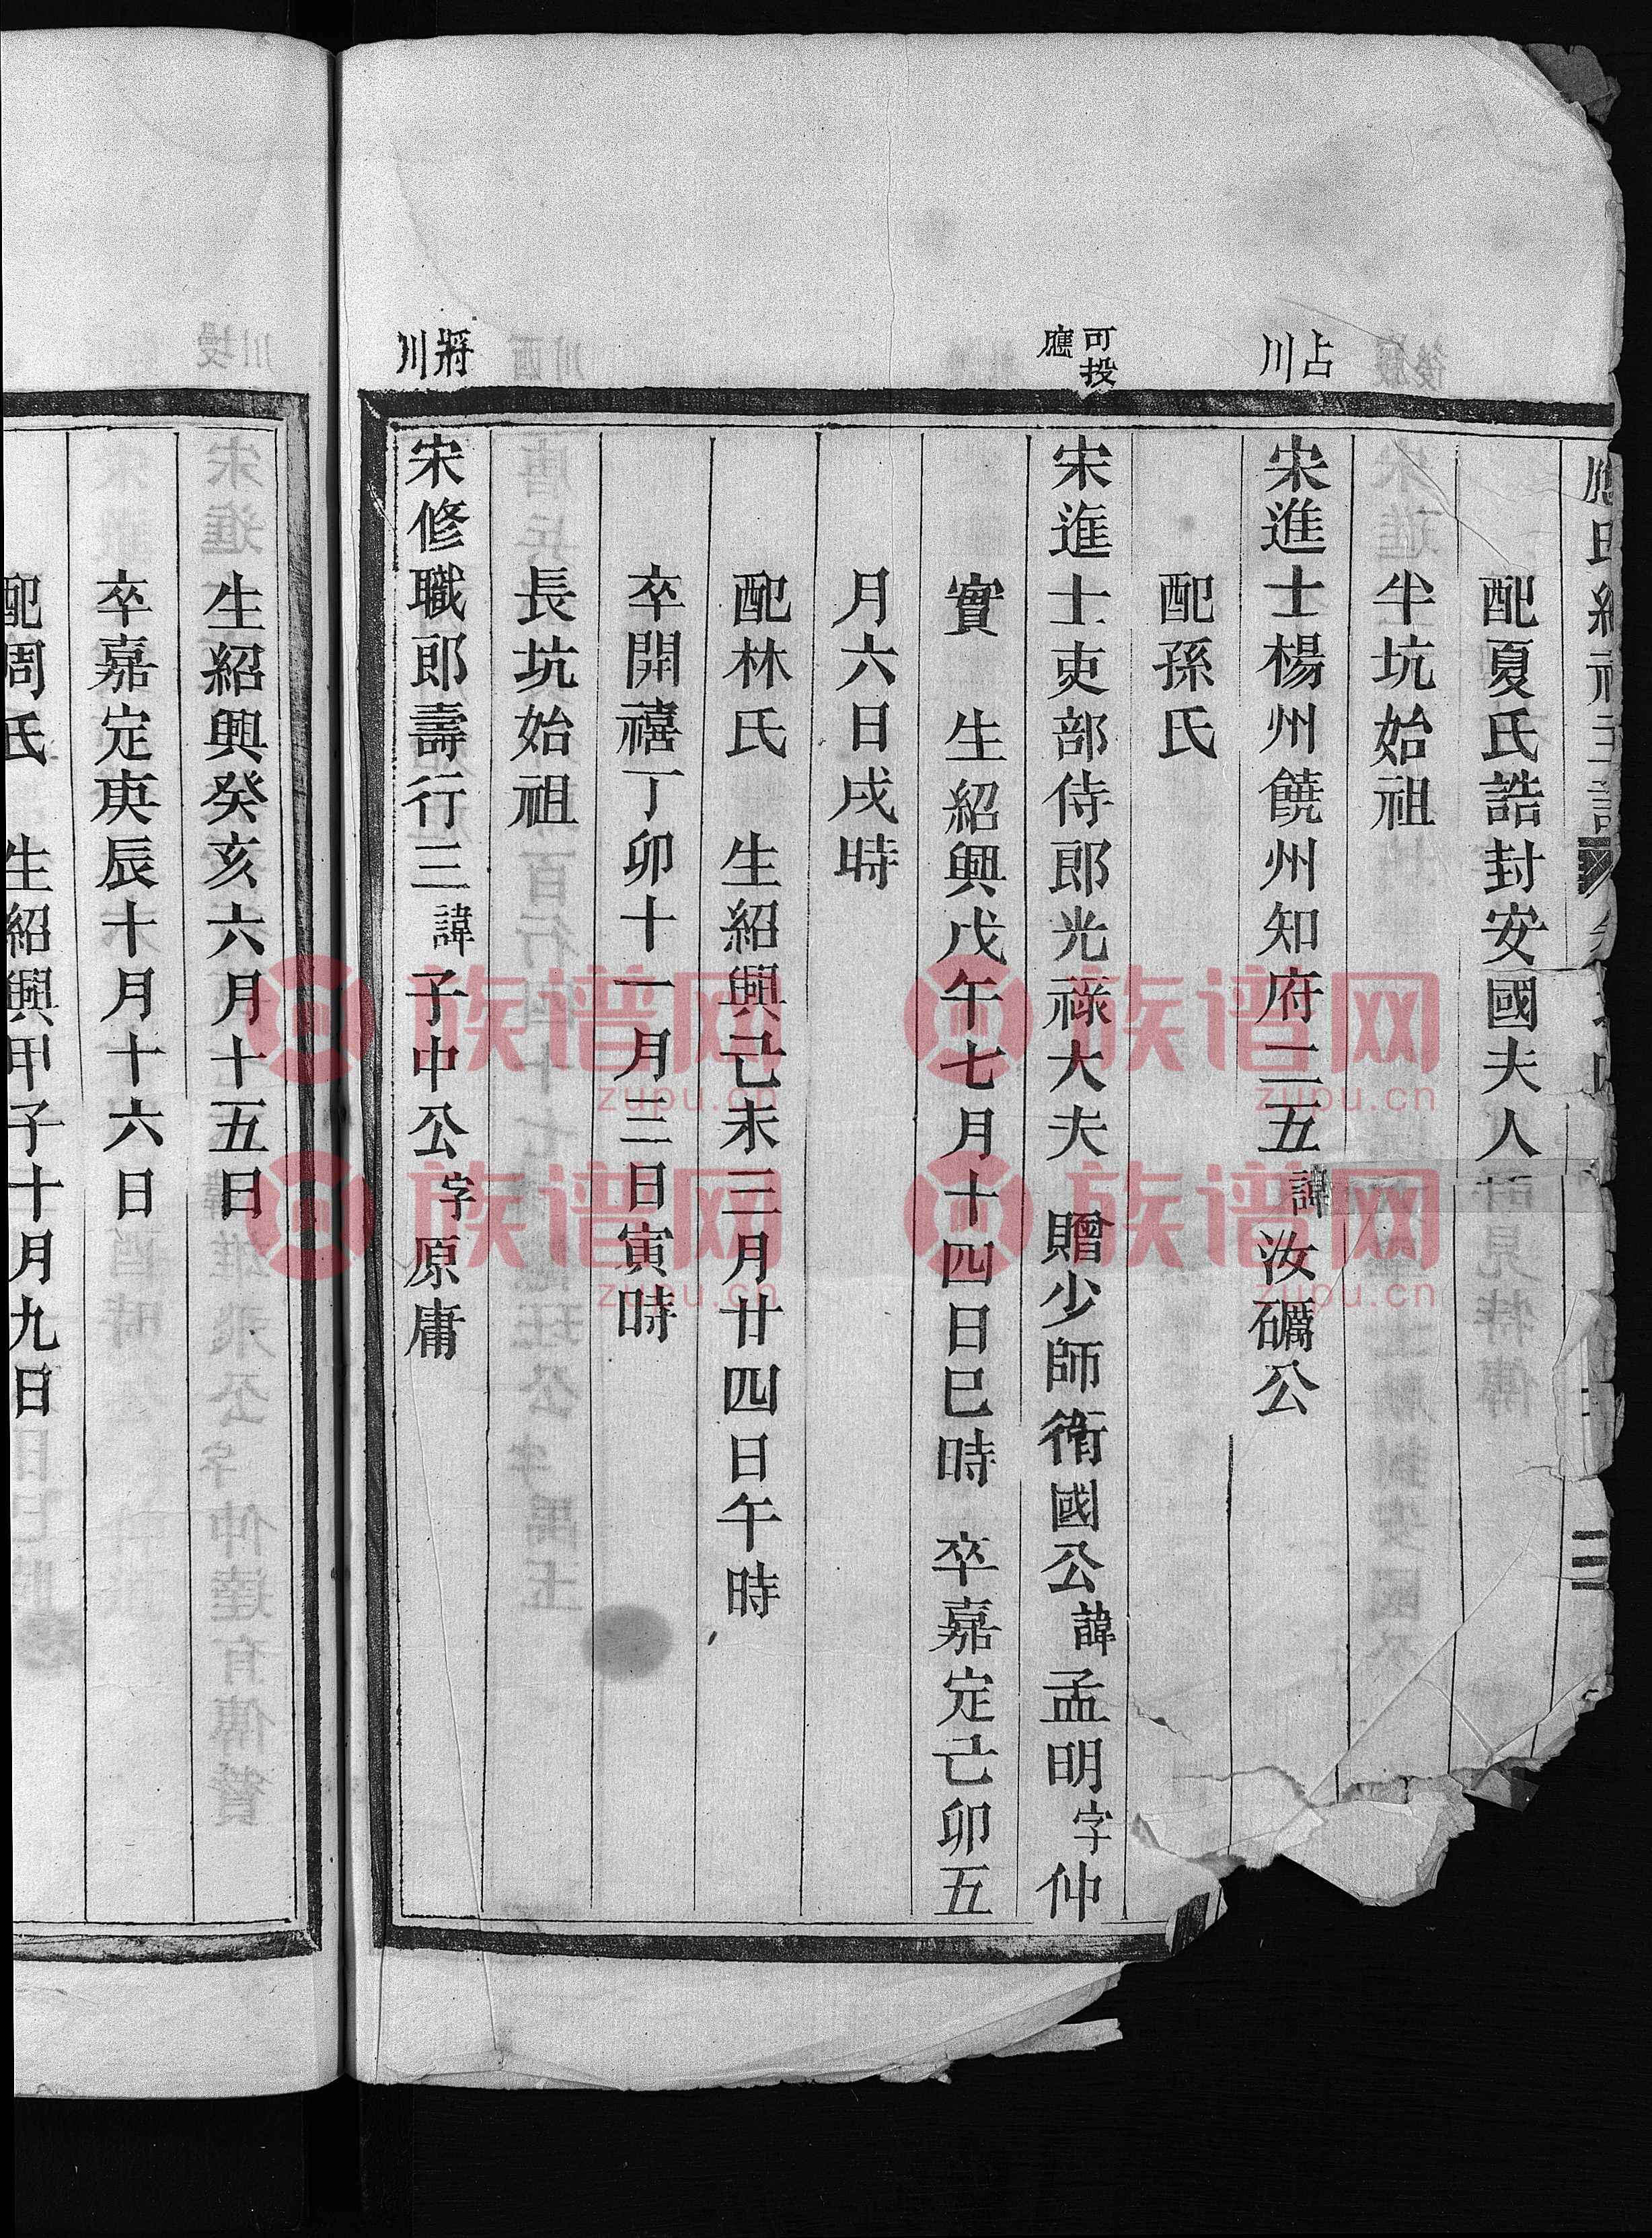 配夏氏誥封安國夫人
坐坑始祖
上占川
宋進士楊州饒州知府二五諱汝礪公
配孫氏
可投應
宋進士吏部侍郎光祿大夫 贈少師衛國公諱孟明字仲
實 生紹興戊午七月十四日巳時 卒嘉定己卯五
月六日戌時
配林氏 生紹興己未三月廿四日午時
卒開禧丁卯十一月三日寅時
長坑始祖
將川
宋修職郎壽行三諱子中公字原庸
生紹興癸亥六月十五日
卒嘉定庚辰十月十六日
配周氏 生紹興甲子十月九日
族谱网
zupu.cn
族谱网
zupu.cn
族谱网
zupu.cn
族谱网
zupu.cn